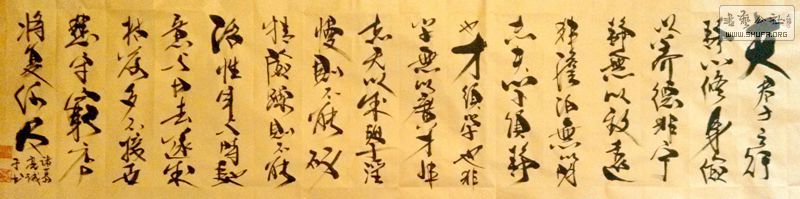 夫君子之行
静以修身俭
以养德非宁
静无以致远
非澹泊无以明
志夫学须静
也才须学也非
学无以广才非
志无以成学淫
慢则不能研
精险躁则不能
治性年与时驰
意与日去遂成
枯落多不接世
悲守穷庐
将复何及
诸葛亮诫子书
书艺公社
WWW.SHUFA.ORG